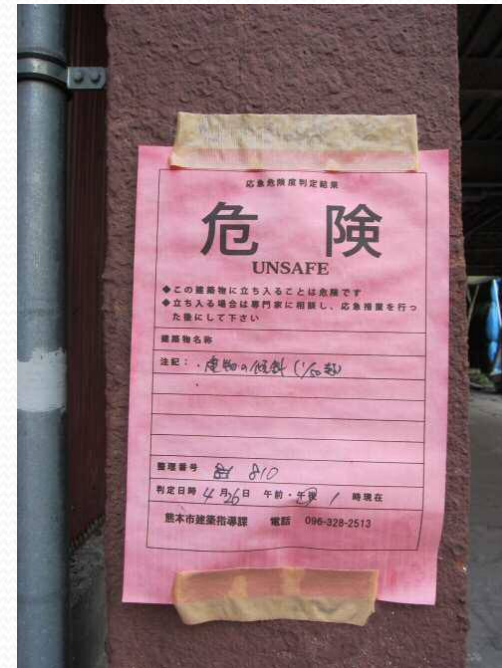 応急危険度判定結果
危 険
UNSAFE
◆この建築物に立ち入ることは危険です
◆立ち入る場合は専門家に相談し、応急措置を行っ
た後にして下さい
建築物名称
注記：・建物の傾斜(1/50超)
整理番号 810
判定日時 4月26日 午前・午後 1 時現在
熊本市建築指導課 電話 096-328-2513